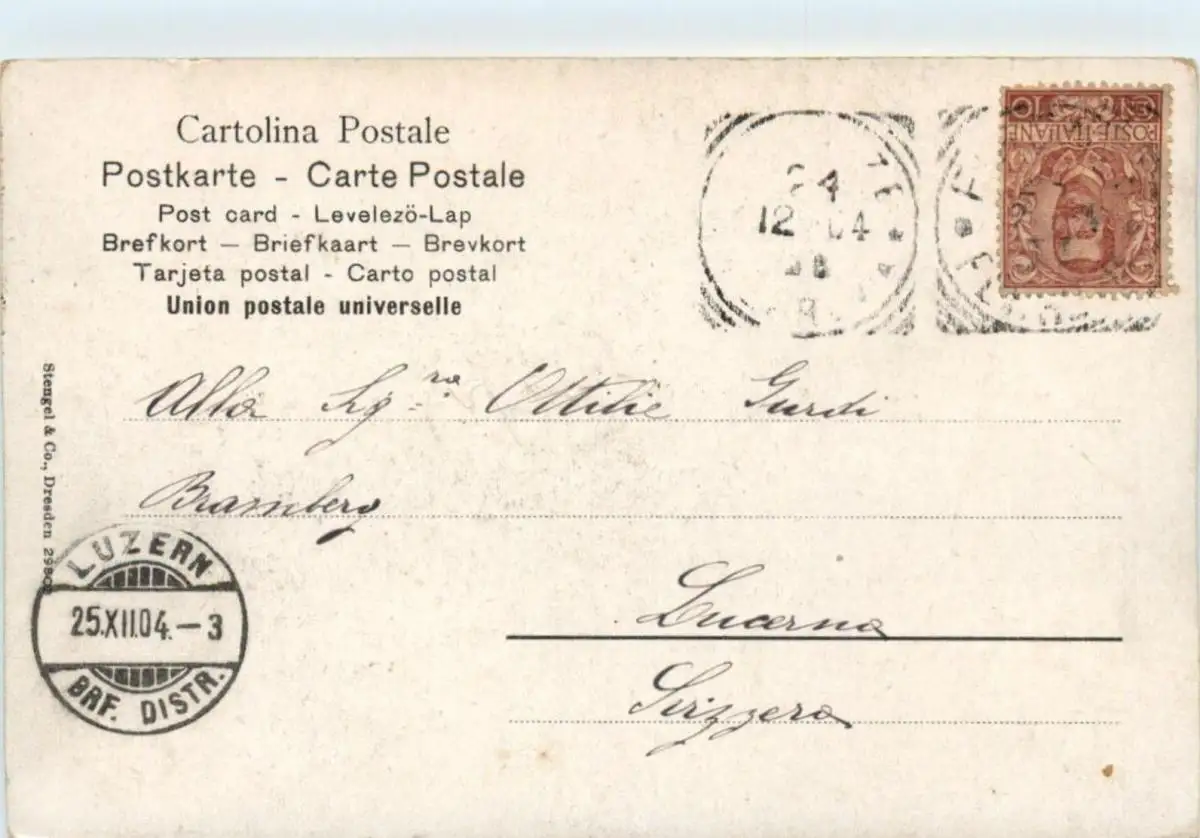 Cartolina Postale
Postkarte - Carte Postale
Post card - Levelezö-Lap
Brefkort — Briefkaart — Brevkort
Tarjeta postal - Carto postal
Union postale universelle
POSTE ITALIANE
24
12 04
Stengel & Co., Dresden
Alla Sg.ra Ottilie Gurdi
Bramberg
LUZERN
25.XII.04.–3
BRF. DISTR.
Lucerna
Svizzera